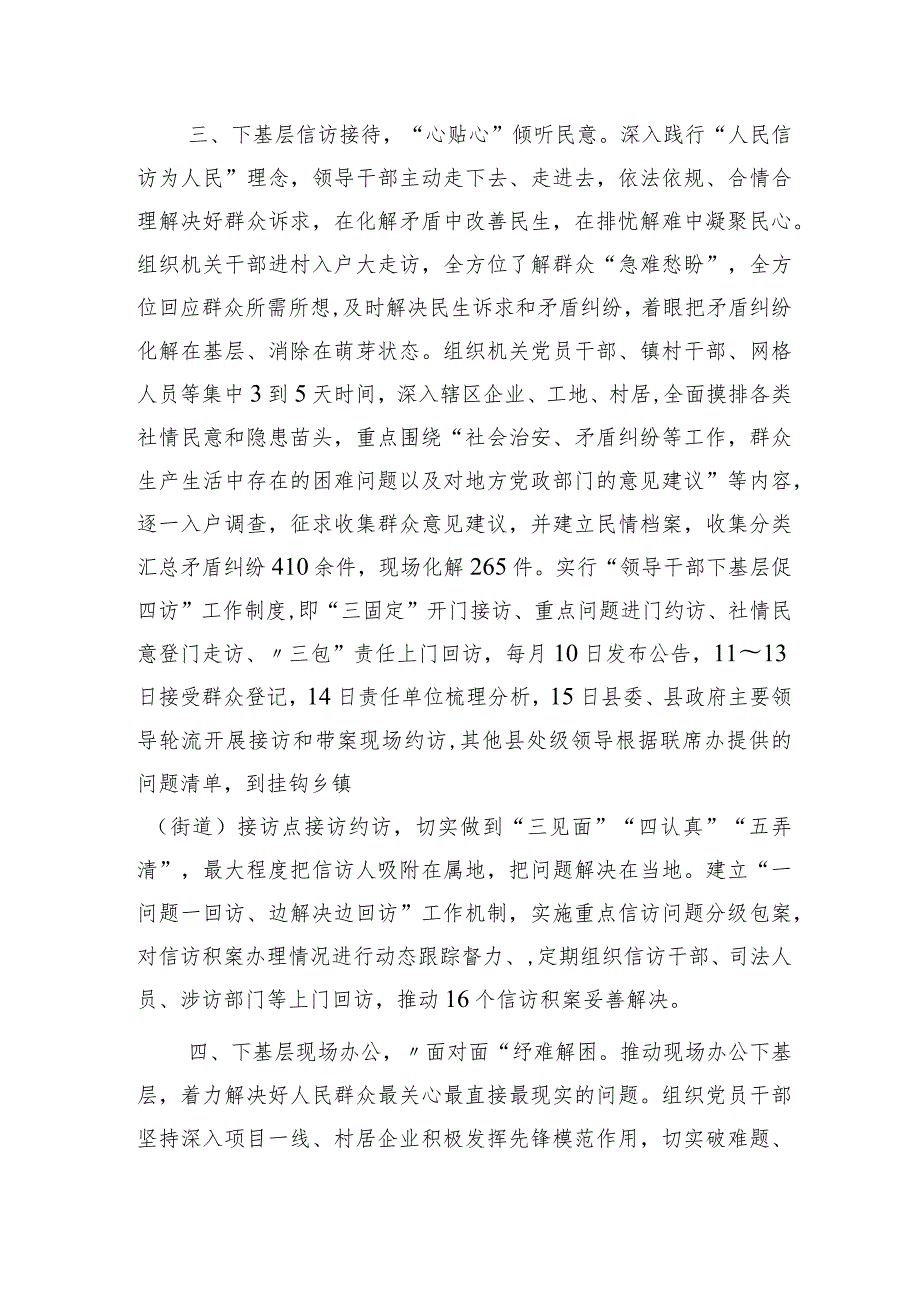 三、下基层信访接待，“心贴心”倾听民意。深入践行“人民信
访为人民”理念，领导干部主动走下去、走进去，依法依规、合情合
理解决好群众诉求，在化解矛盾中改善民生，在排忧解难中凝聚民心。
组织机关干部进村入户大走访，全方位了解群众“急难愁盼”，全方
位回应群众所需所想,及时解决民生诉求和矛盾纠纷，着眼把矛盾纠纷
化解在基层、消除在萌芽状态。组织机关党员干部、镇村干部、网格
人员等集中3到5天时间，深入辖区企业、工地、村居,全面摸排各类
社情民意和隐患苗头，重点围绕“社会治安、矛盾纠纷等工作，群众
生产生活中存在的困难问题以及对地方党政部门的意见建议”等内容，
逐一入户调查，征求收集群众意见建议，并建立民情档案，收集分类
汇总矛盾纠纷410余件，现场化解265件。实行“领导干部下基层促
四访”工作制度,即“三固定”开门接访、重点问题进门约访、社情民
意登门走访、〃三包”责任上门回访，每月10日发布公告，11～13
日接受群众登记，14日责任单位梳理分析，15日县委、县政府主要领
导轮流开展接访和带案现场约访,其他县处级领导根据联席办提供的
问题清单，到挂钩乡镇
（街道）接访点接访约访，切实做到“三见面”“四认真”“五弄
清”，最大程度把信访人吸附在属地，把问题解决在当地。建立“一
问题一回访、边解决边回访”工作机制，实施重点信访问题分级包案，
对信访积案办理情况进行动态跟踪督力、,定期组织信访干部、司法人
员、涉访部门等上门回访，推动16个信访积案妥善解决。
四、下基层现场办公，〃面对面“纾难解困。推动现场办公下基
层，着力解决好人民群众最关心最直接最现实的问题。组织党员干部
坚持深入项目一线、村居企业积极发挥先锋模范作用，切实破难题、